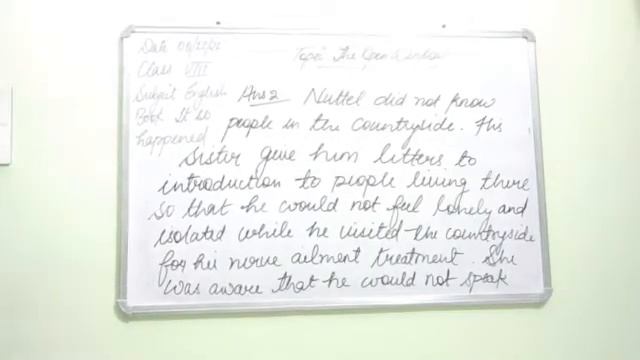 Date
Class VIII
Subject English
Book It so
happened
Topic The Open Window
Ans 2 Nuttel did not know
people in the countryside. His
sister give him litters to
introduction to people living there
so that he would not feel lonely and
isolated while he visited the countryside
for his nerve ailment treatment. She
was aware that he would not speak